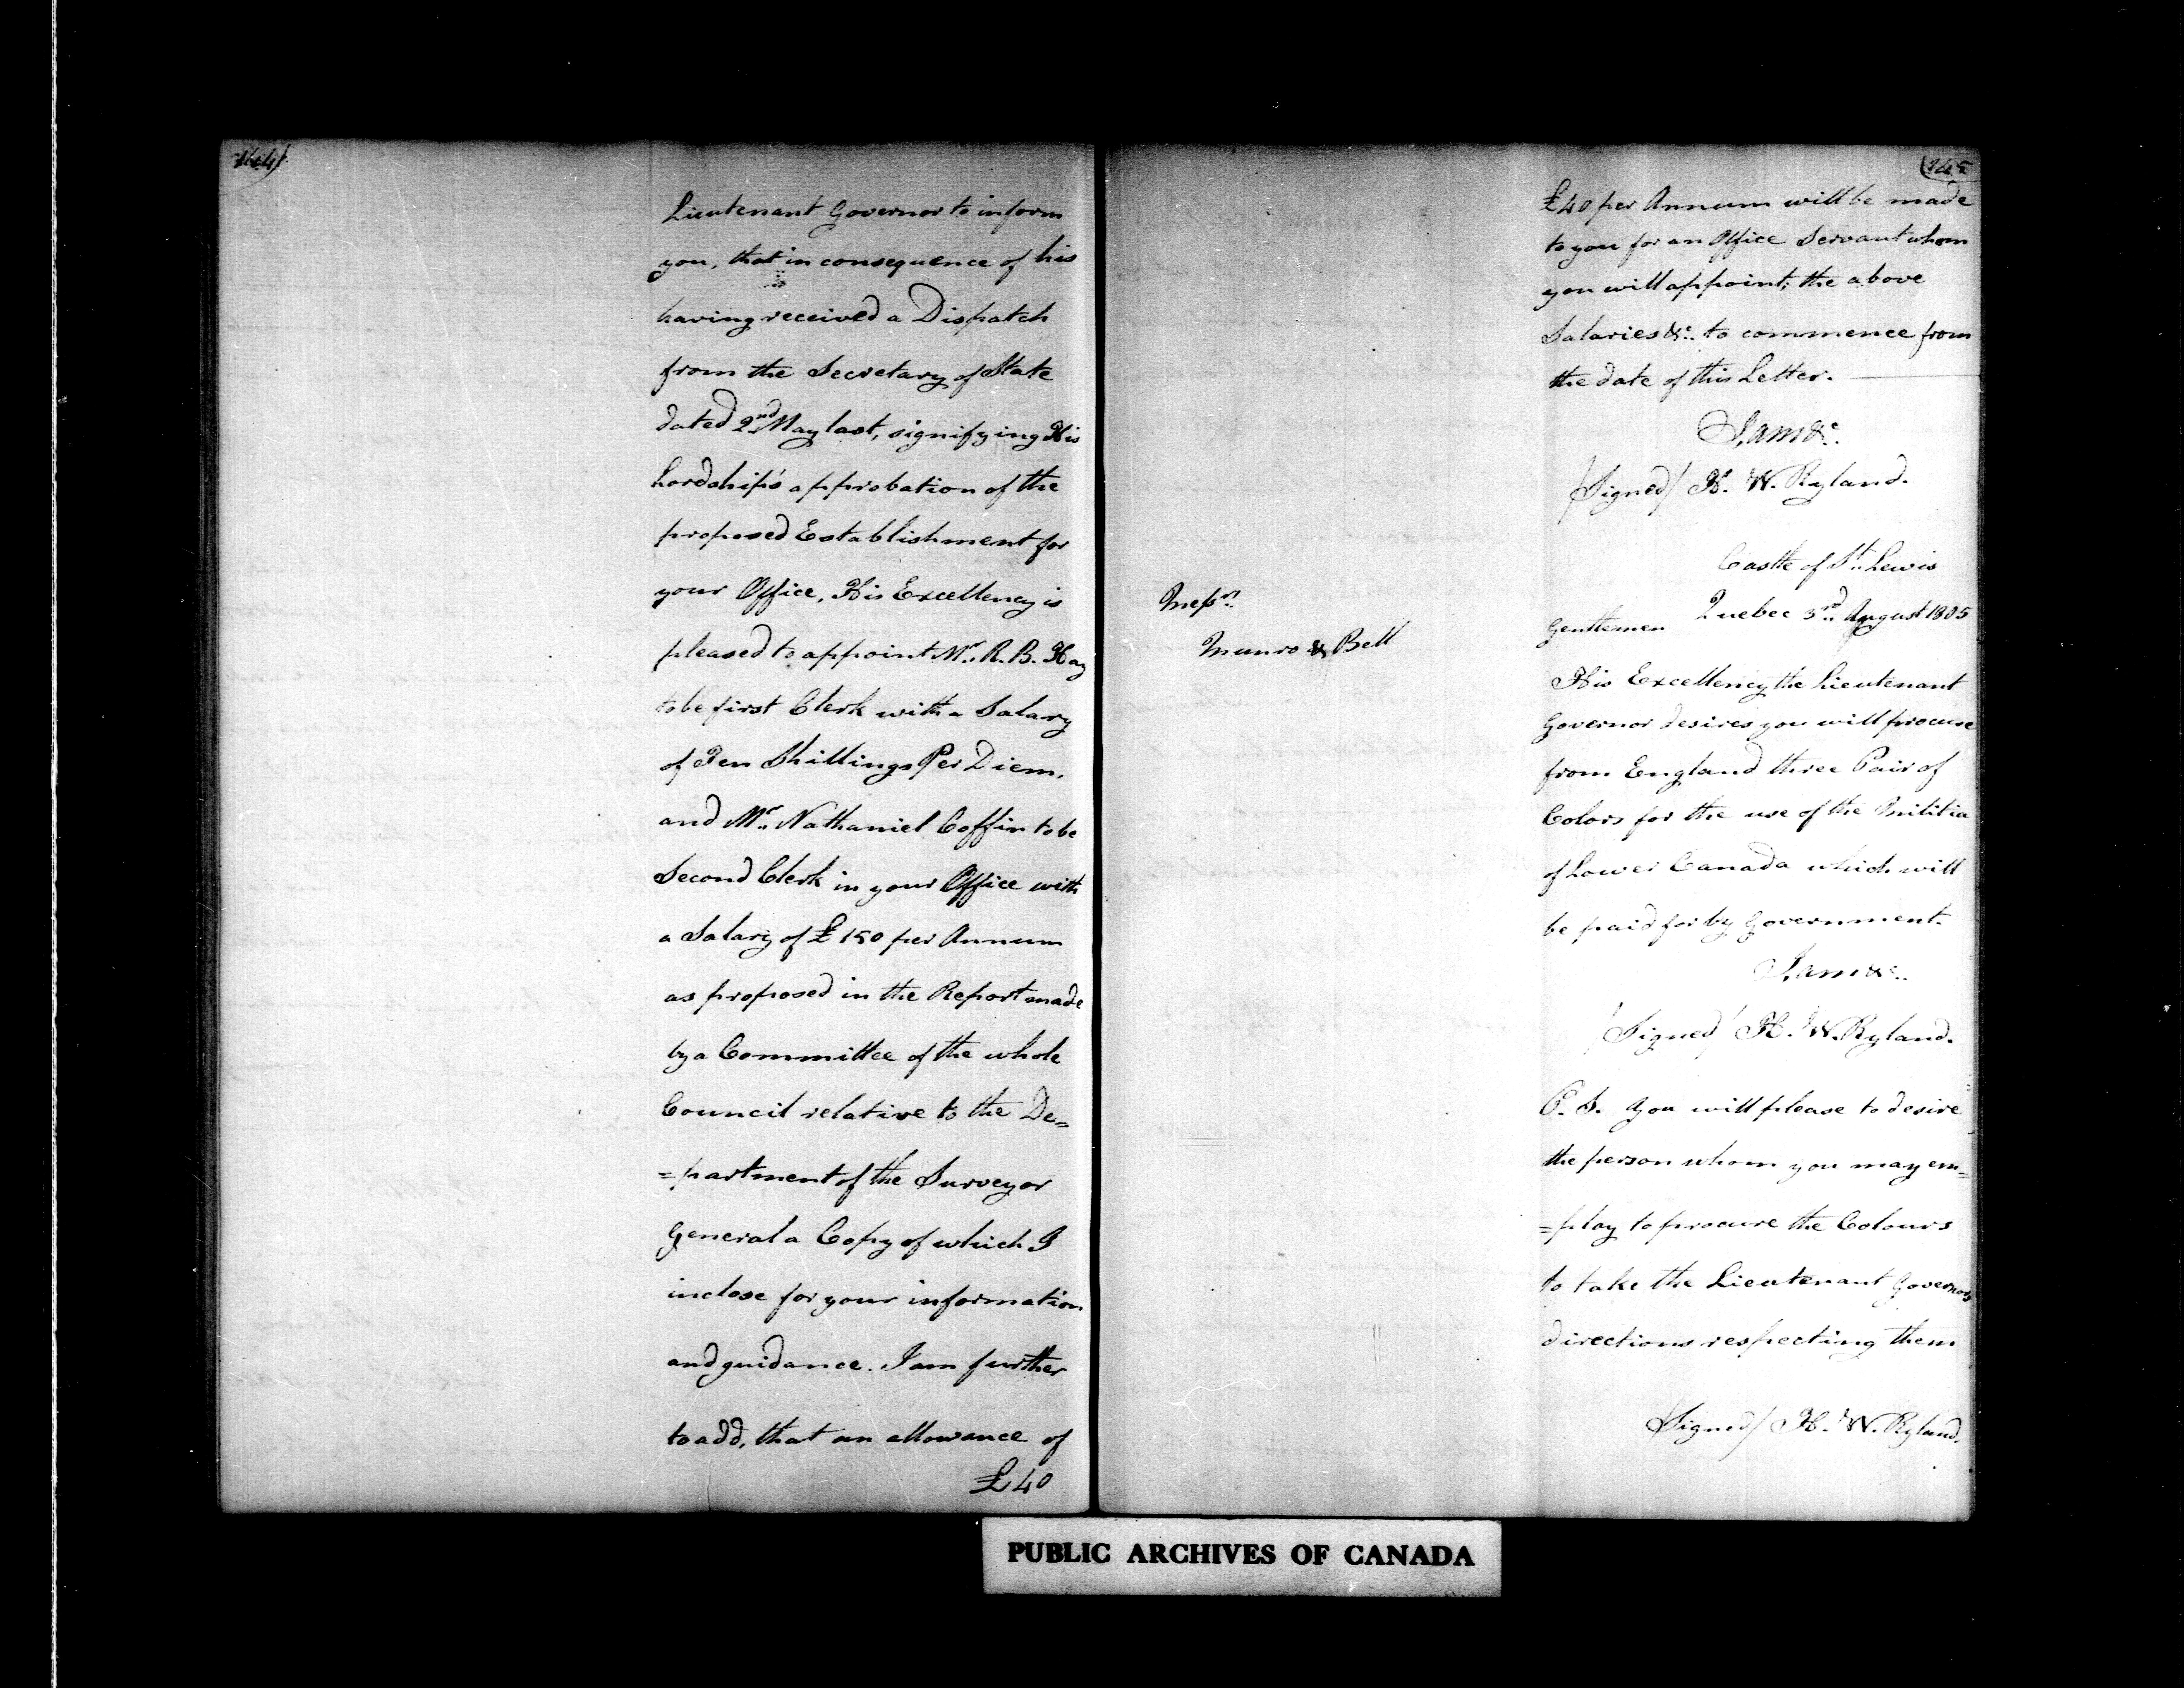 144)
Lieutenant Governor to inform
you, that in consequence of his
having received a Dispatch
from the Secretary of State
dated 2nd. May last, signifying His
Lordship's approbation of the
proposed Establishment for
your Office, His Excellency is
pleased to appoint Mr. R. B. Hay
to be first Clerk with a Salary
of Ten Shillings Per Diem,
and Mr. Nathaniel Coffin to be
Second Clerk in your Office with
a Salary of £150 per Annum
as proposed in the Report made
by a Committee of the whole
Council relative to the De=
=partment of the Surveyor
General a Copy of which I
inclose for your information
and guidance. I am further
to add, that an allowance of
£40
(145
£40 per Annum will be made
to you for an Office Servant whom
you will appoint; the above
Salaries &c. to commence from
the date of this Letter.
I am &c.
/Signed/ H. W. Ryland.
Castle of St. Lewis
Quebec 3rd. August 1805
Messrs.
Munro & Bell
Gentlemen
His Excellency the Lieutenant
Governor desires you will procure
from England three Pair of
Colors for the use of the Militia
of Lower Canada which will
be paid for by Government.
I am &c.
/Signed/ H. W. Ryland.
P. S. You will please to desire
the person whom you may em=
=ploy to procure the Colours
to take the Lieutenant Governors
directions respecting them
/Signed/ H. W. Ryland.
PUBLIC ARCHIVES OF CANADA